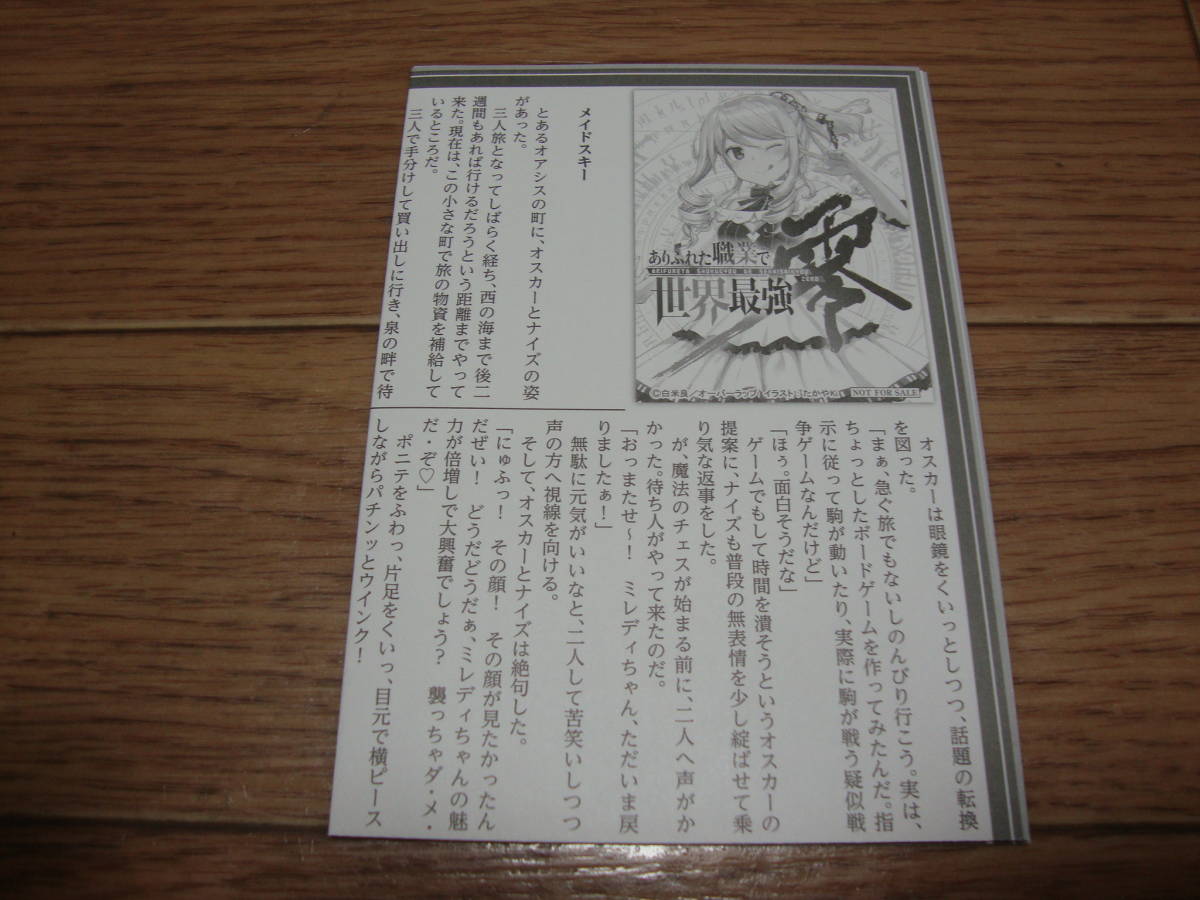 メイドスキー
とあるオアシスの町に、オスカーとナイズの姿
があった。
三人旅となってしばらく経ち、西の海まで後二
週間もあれば行けるだろうという距離までやって
来た。現在は、この小さな町で旅の物資を補給して
いるところだ。
三人で手分けして買い出しに行き、泉の畔で待
ありふれた職業で
ARIFURETA SHOKUGYOU DE SEKAISAIKYOU
ZERO
世界最強
零
©白米良／オーバーラップ イラスト：たかやKi
NOT FOR SALE
オスカーは眼鏡をくいっとしつつ、話題の転換
を図った。
「まぁ、急ぐ旅でもないしのんびり行こう。実は、
ちょっとしたボードゲームを作ってみたんだ。指
示に従って駒が動いたり、実際に駒が戦う疑似戦
争ゲームなんだけど」
「ほぅ。面白そうだな」
ゲームでもして時間を潰そうというオスカーの
提案に、ナイズも普段の無表情を少し綻ばせて乗
り気な返事をした。
が、魔法のチェスが始まる前に、二人へ声がか
かった。待ち人がやって来たのだ。
「おっまたせ～！　ミレディちゃん、ただいま戻
りましたぁ！」
無駄に元気がいいなと、二人して苦笑いしつつ
声の方へ視線を向ける。
そして、オスカーとナイズは絶句した。
「にゅふっ！　その顔！　その顔が見たかったん
だぜい！　どうだどうだぁ、ミレディちゃんの魅
力が倍増しで大興奮でしょう？　襲っちゃダ・メ・
だ・ぞ♡」
ポニテをふわっ、片足をくいっ、目元で横ピース
しながらパチンッとウインク！